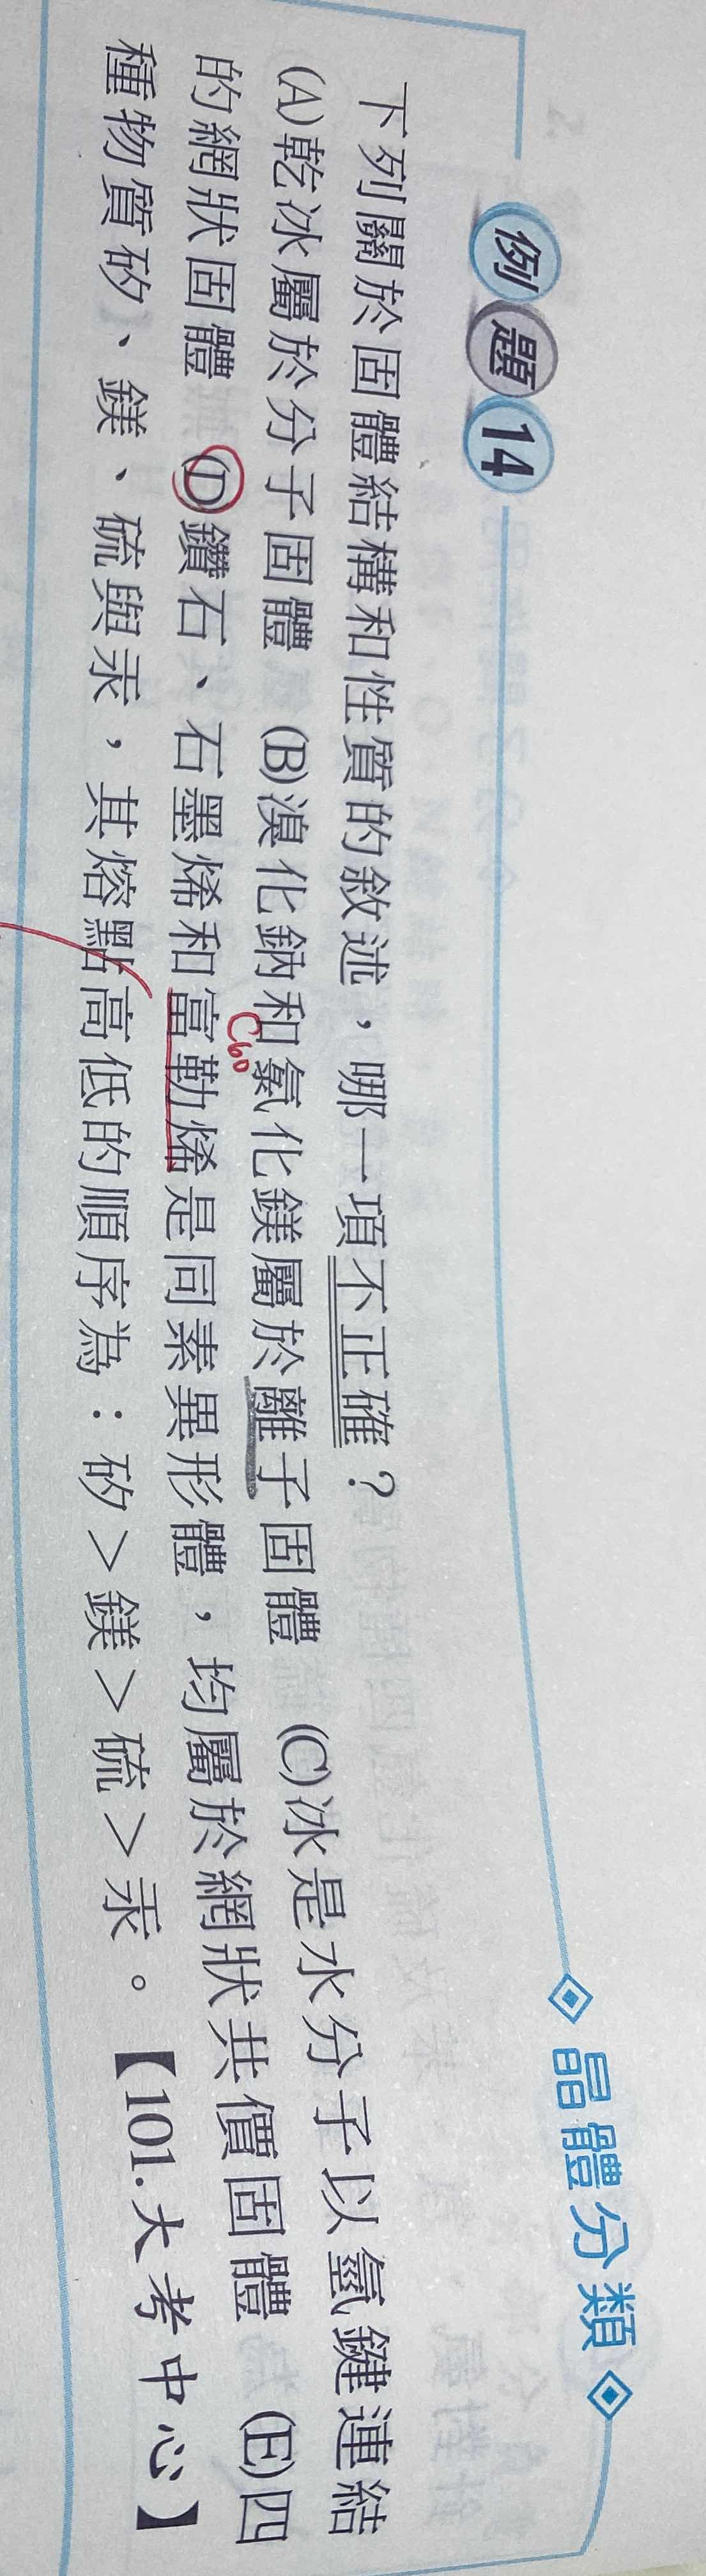 例題14
◇晶體分類◇
下列關於固體結構和性質的敘述，哪一項不正確？
(A)乾冰屬於分子固體 (B)溴化鈉和氯化鎂屬於離子固體 (C)冰是水分子以氫鍵連結
C60
的網狀固體 (D)鑽石、石墨烯和富勒烯是同素異形體，均屬於網狀共價固體 (E)四
種物質矽、鎂、硫與汞，其熔點高低的順序為：矽＞鎂＞硫＞汞。【101.大考中心】